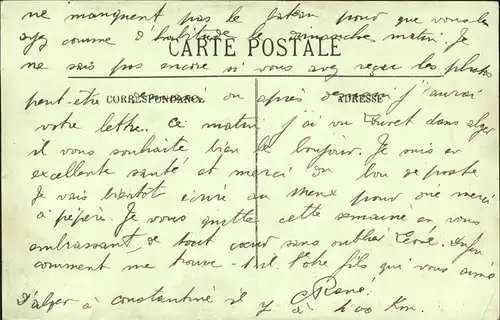 ne manquent pas le bateau pour que vous les
ayez comme d'habitude le dimanche matin. Je
CARTE POSTALE
ne sais pas encore si vous avez reçu les photos
peut-être demain ou après demain j'aurai
CORRESPONDANCE
ADRESSE
votre lettre. Ce matin j'ai vu dans alger
il vous souhaite bien le bonjour. Je suis en
excellente santé et merci du bon de poste
Je vais bientôt écrire au pour merci
à pépère. Je vous quitte cette semaine en vous
embrassant de tout cœur sans oublier
comment me trouve-t-il. Votre fils qui vous aime
René.
D'alger à constantine il y à 400 Km.